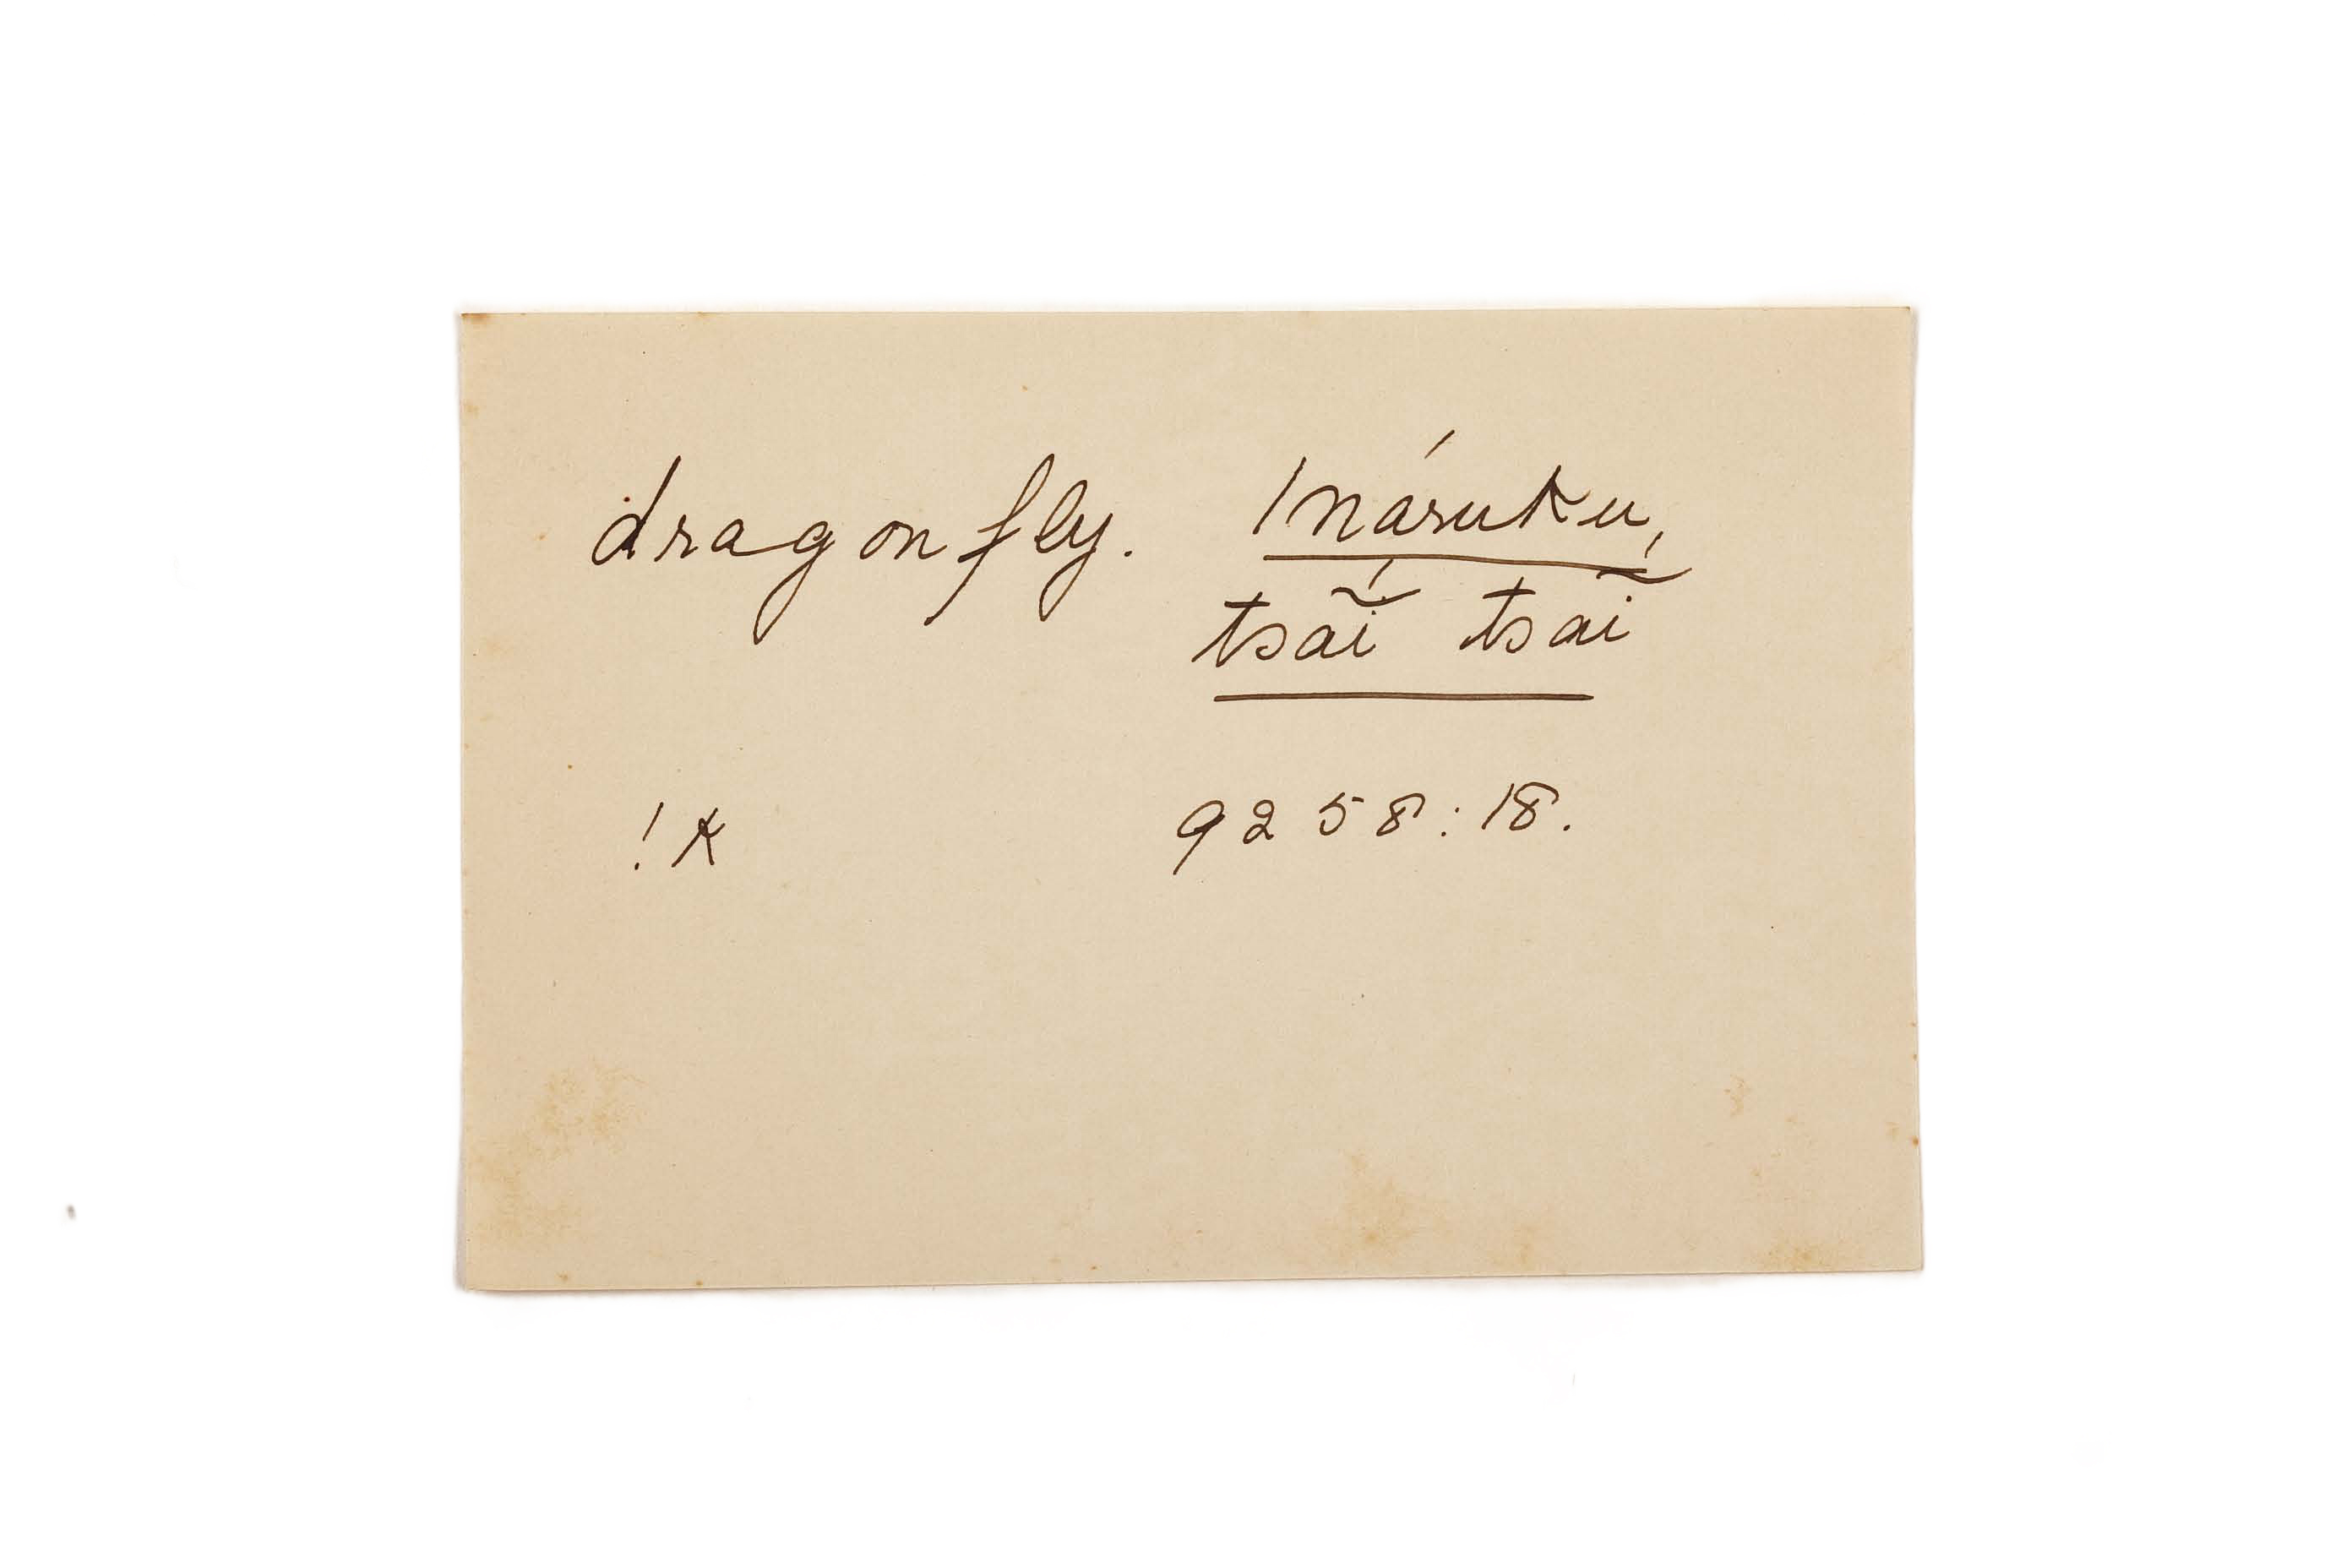 dragonfly. Ináruku,
tsaĩ́ tsaĩ́
!k 9258:18.